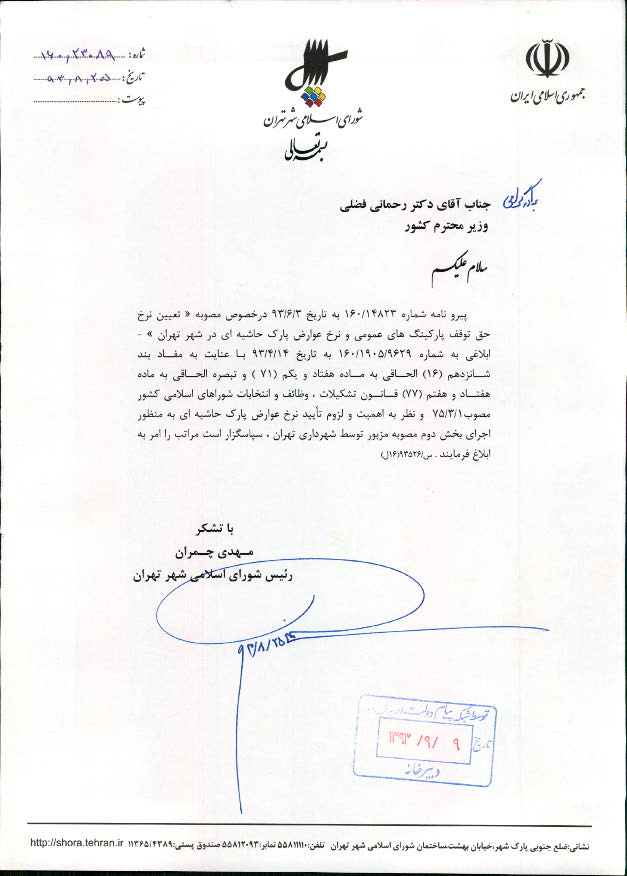 جمهوری اسلامی ایران
شورای اسلامی شهر تهران
بسمه تعالی
شماره: ۱۶۰/۲۳۰۸۹
تاریخ: ۹۳/۸/۲۵
پیوست:
جناب آقای دکتر رحمانی فضلی
وزیر محترم کشور
سلام علیکم
پیرو نامه شماره ۱۶۰/۱۴۸۲۳ به تاریخ ۹۳/۶/۳ درخصوص مصوبه « تعیین نرخ
حق توقف پارکینگ های عمومی و نرخ عوارض پارک حاشیه ای در شهر تهران » -
ابلاغی به شماره ۱۶۰/۱۹۰۵/۹۶۲۹ به تاریخ ۹۳/۴/۱۴ با عنایت به مفاد بند
شانزدهم (۱۶) الحاقی به ماده هفتاد و یکم (۷۱ ) و تبصره الحاقی به ماده
هفتاد و هفتم (۷۷) قانون تشکیلات ، وظائف و انتخابات شوراهای اسلامی کشور
مصوب۷۵/۳/۱ و نظر به اهمیت و لزوم تأیید نرخ عوارض پارک حاشیه ای به منظور
اجرای بخش دوم مصوبه مزبور توسط شهرداری تهران ، سپاسگزار است مراتب را امر به
ابلاغ فرمایند . س/۹۳۵۲۶(۱۶ل)
با تشکر
مهدی چمران
رئیس شورای اسلامی شهر تهران
۹۳/۸/۲۵
توسط شبکه پیام دولت
تاریخ ۱۳۹۳ /۹/ ۹
دبیرخانه
نشانی:ضلع جنوبی پارک شهر،خیابان بهشت،ساختمان شورای اسلامی شهر تهران تلفن:۵۵۸۱۱۱۱۰ نمابر:۵۵۸۱۲۰۹۳ صندوق پستی:۱۱۳۶۵/۴۳۸۹ http://shora.tehran.ir